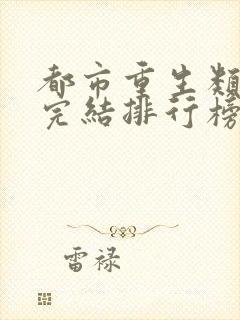 都市重生類
完結排行榜
雷祿